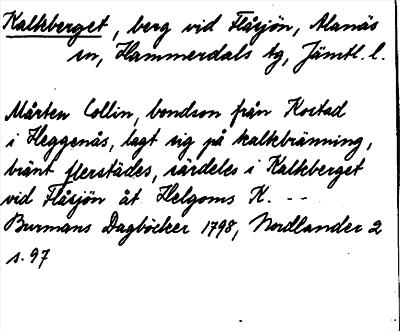 Kalkberget, berg vid Flåsjön, Alanäs
sn, Hammerdals tg, Jämtl. l.
Mårten Collin, bondson från Kostad
i Heggenås, lagt sig på kalkbränning,
bränt flerstädes, särdeles i Kalkberget
vid Flåsjön åt Helgoms K. --
Burmans Dagböcker 1798, Nordlander 2
s. 97